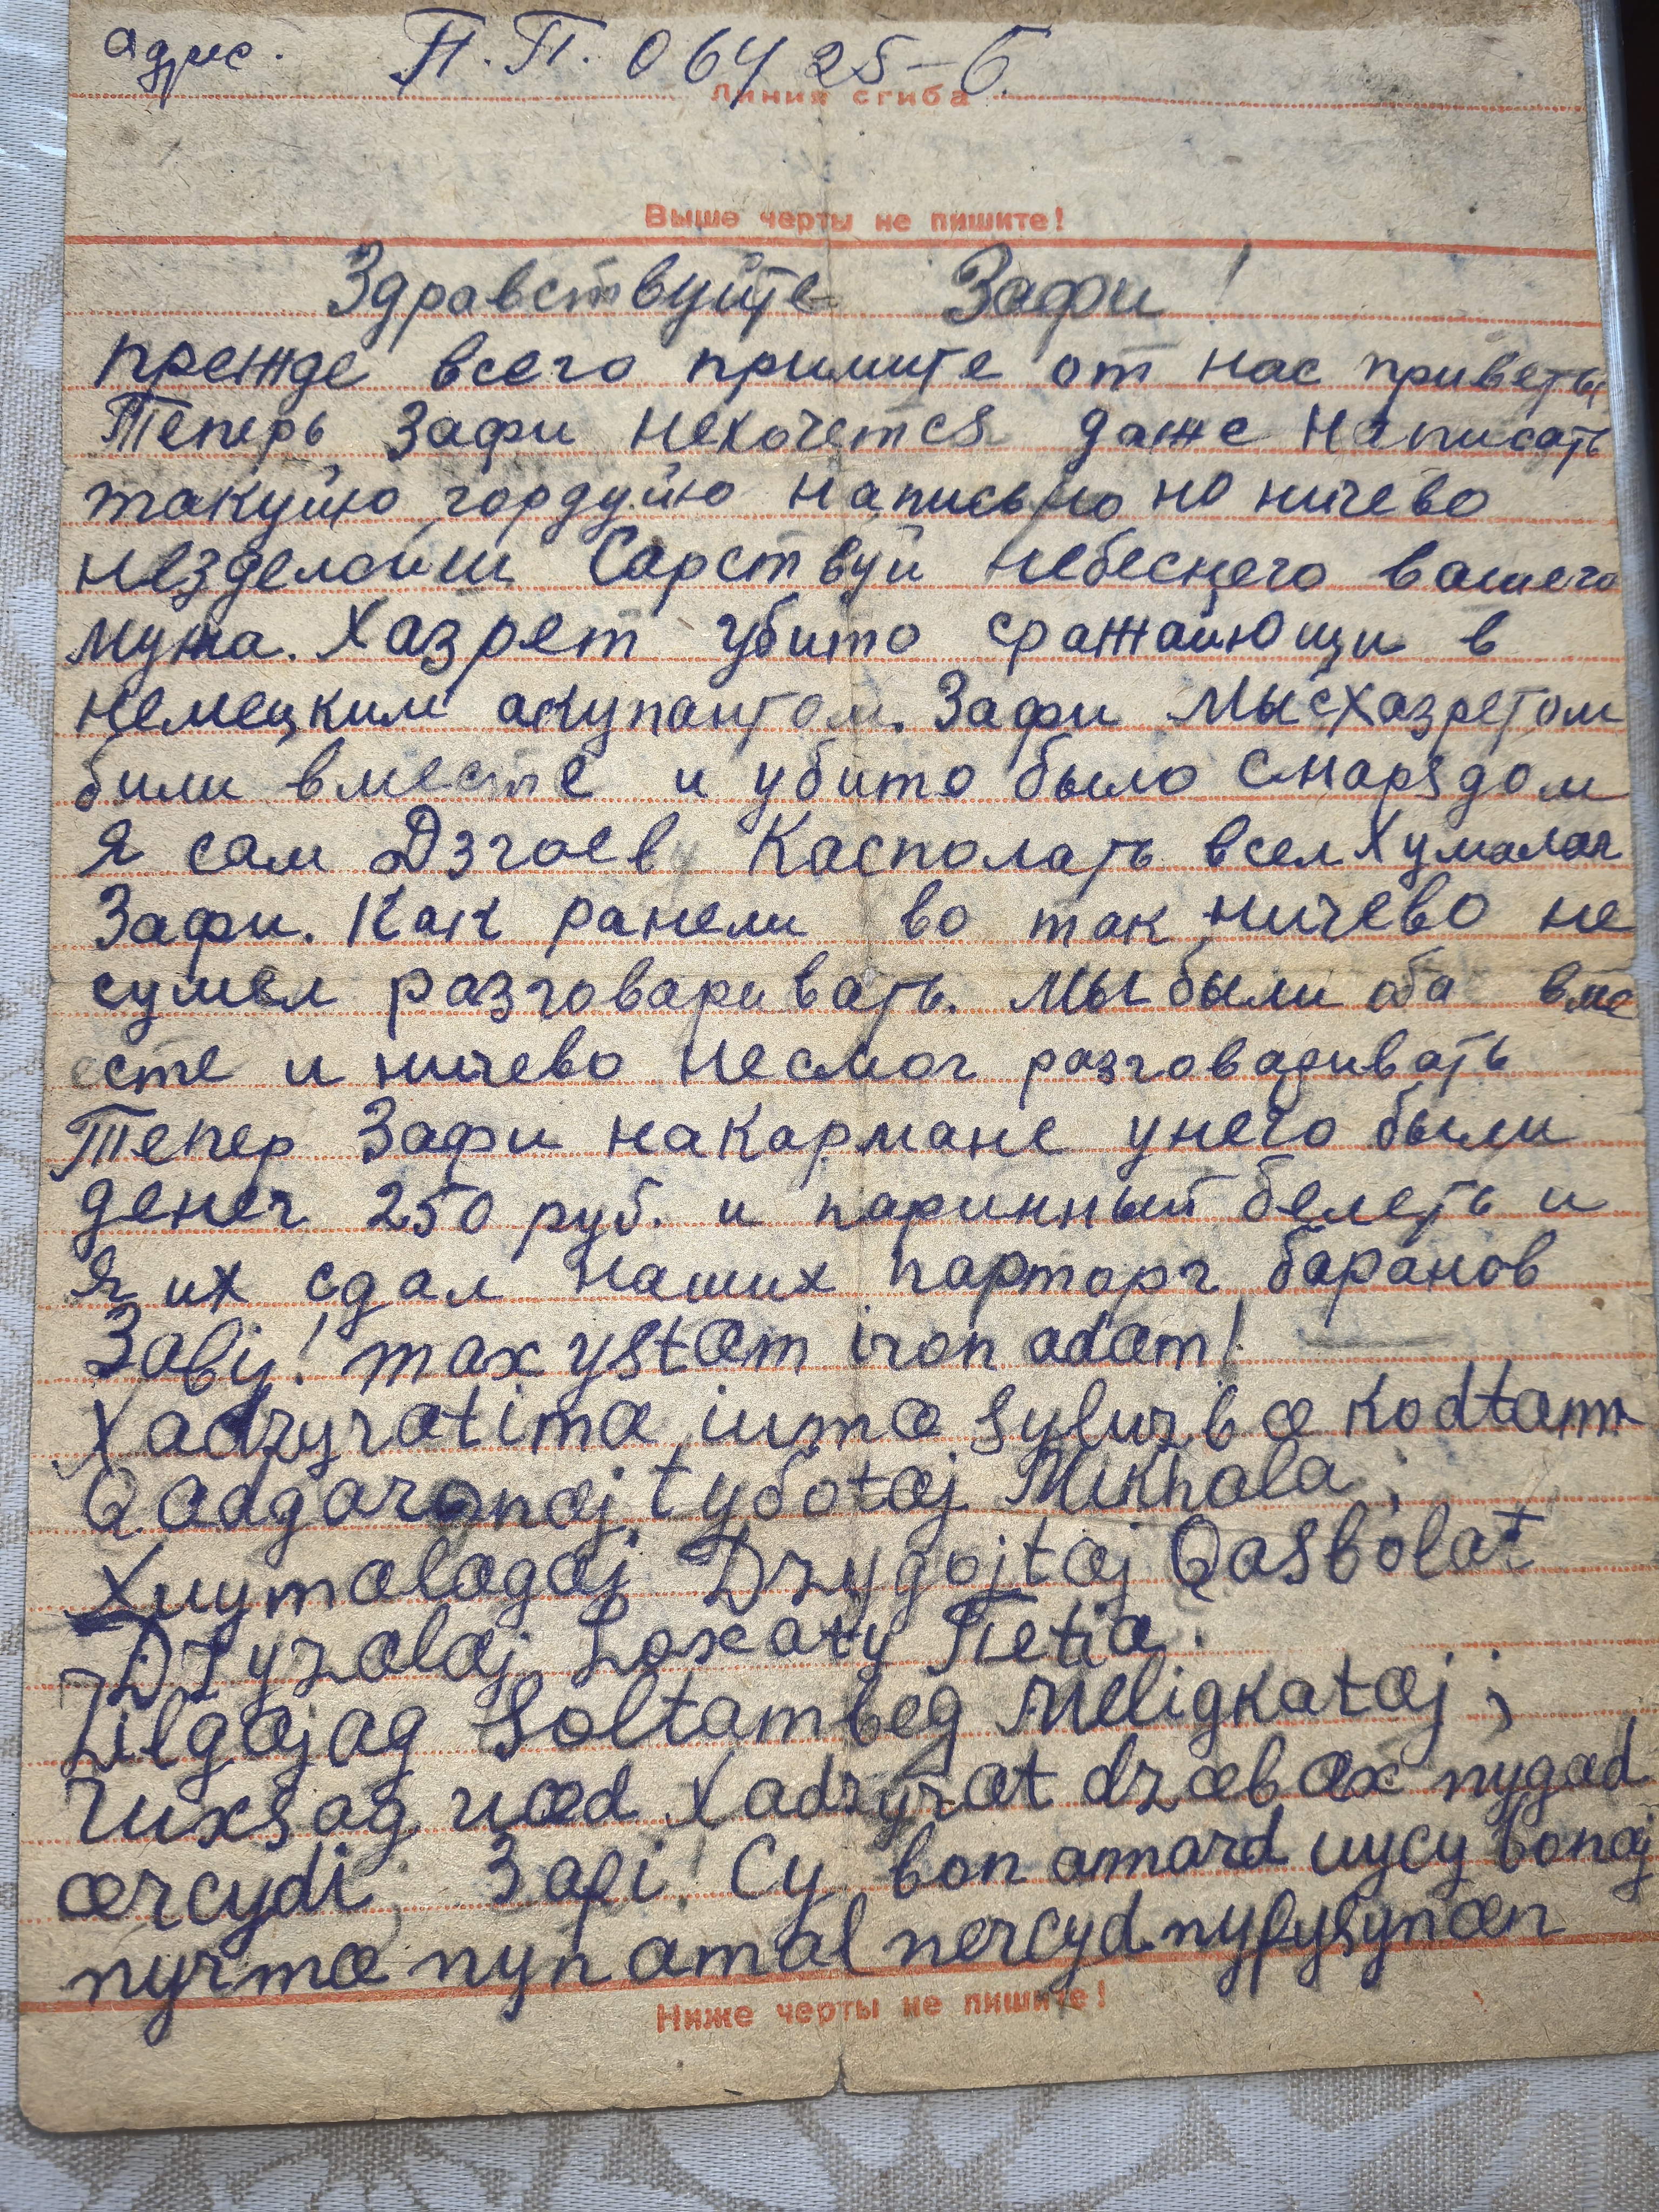 адрис. П.П. 06425-б.
Линия сгиба
Выше черты не пишите!
Здравствуйте Зафи!
прежде всего примите от нас приветы
Теперь Зафи нехочется даже написать
такуйю гордуйю написьмо но ничево
незделойиш Сарствуй небеснего вашего
мужа. Хазрет убито сражайющи в
немецким акупантом. Зафи мысхазретом
били вместе и убито было снарядом
я сам Дзгоев Касполать всел Хумалаг
Зафи. Как ранели во так ничево не
сумел разговаривать. мы были оба вме
сте и ничево несмог разговаривать
Тепер Зафи накармане унего были
денег 250 руб. и паринный белеть и
я их сдал наших парторг баранов
Завj! max ystæm iron adæm!
Xadzyrætimæ iumæ syluzbæ kodtam
Qædgaronæj tyбotæj Mikhala;
Xuymælægæj Dzygojtæj Qasbolat
Dzyzalæj Loxaty Пetiæ.
Zilgæjag Soltambeg Meligkatæj;
ruxsag uæd Xadzyræt dzæbæx nygæd
ærcydi, Зafi! Cy bon amard uycy bonæj
nyrmæ nyn amal nercyd nyfysynæn
Ниже черты не пишите!